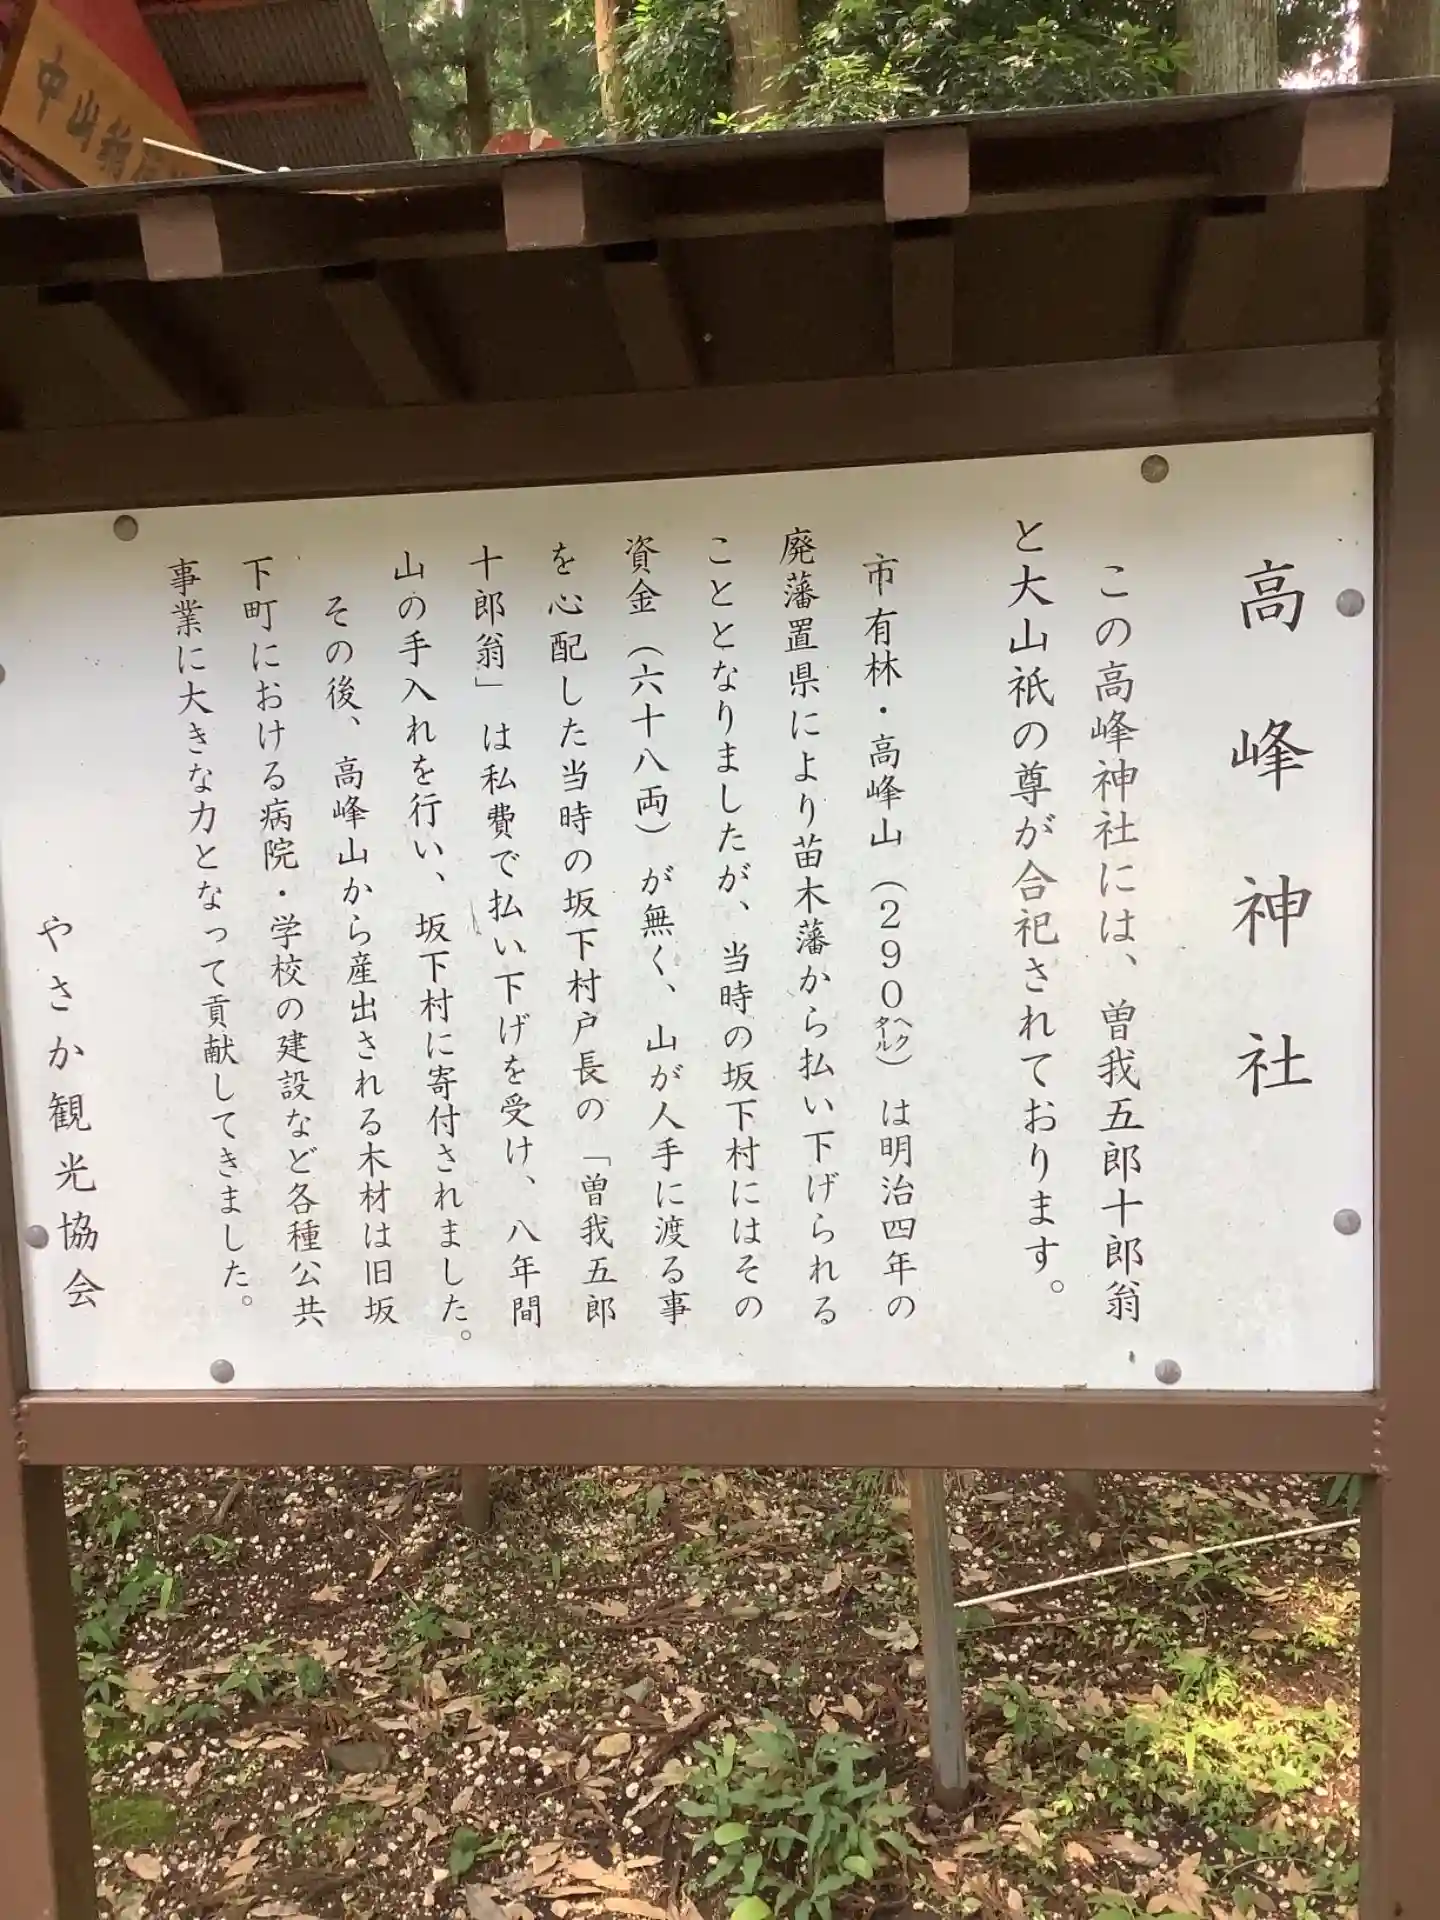 中山稲荷
高峰神社
この高峰神社には、曽我五郎十郎翁
と大山祇の尊が合祀されております。
市有林・高峰山（２９０ヘクタール）は明治四年の
廃藩置県により苗木藩から払い下げられる
こととなりましたが、当時の坂下村にはその
資金（六十八両）が無く、山が人手に渡る事
を心配した当時の坂下村戸長の「曽我五郎
十郎翁」は私費で払い下げを受け、八年間
山の手入れを行い、坂下村に寄付されました。
その後、高峰山から産出される木材は旧坂
下町における病院・学校の建設など各種公共
事業に大きな力となって貢献してきました。
やさか観光協会